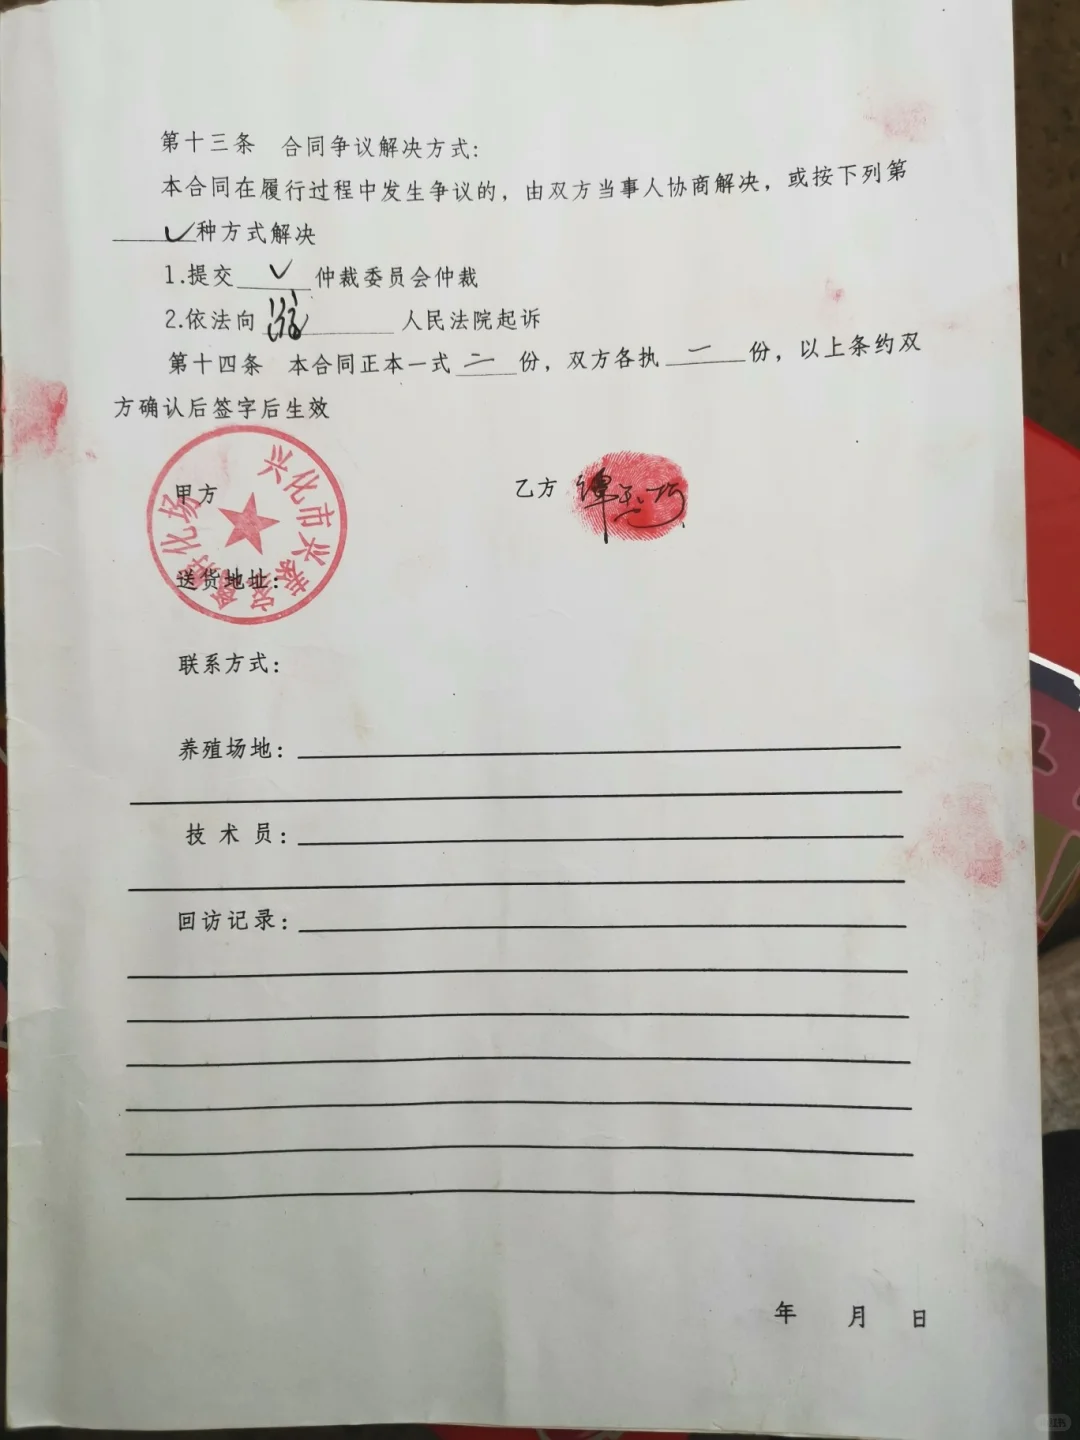 第十三条 合同争议解决方式:
本合同在履行过程中发生争议的，由双方当事人协商解决，或按下列第
✓种方式解决
1.提交 ✓ 仲裁委员会仲裁
2.依法向 人民法院起诉
第十四条 本合同正本一式 二 份，双方各执 一 份，以上条约双
方确认后签字后生效
甲方
乙方
兴化市兴泰家禽孵化场
送货地址:
联系方式:
养殖场地:
技术员:
回访记录:
年 月 日